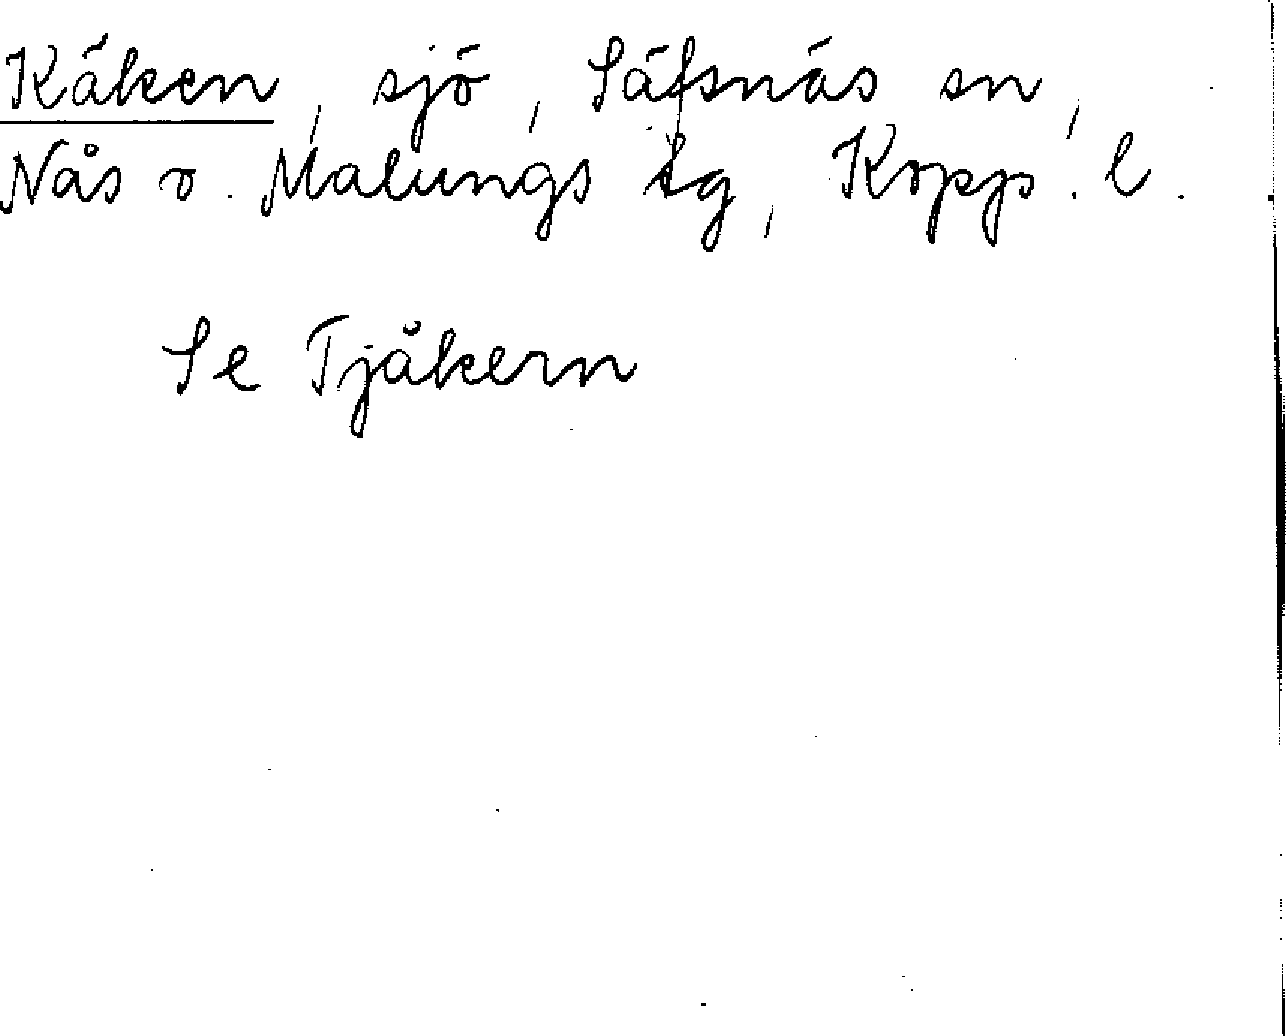 Käken, sjö, Säfsnäs sn,
Nås o. Malungs tg, Kopp. l.
Se Tjåkern